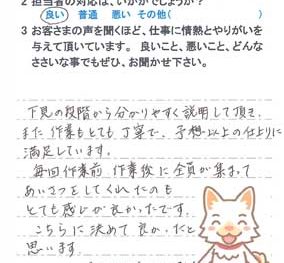 2 担当者の対応は、いかがでしょうか?
良い 普通 悪い その他( )
3 お客さまの声を聞くほど、仕事に情熱とやりがいを
与えて頂いています。 良いこと、悪いこと、どんな
ささいな事でもぜひ、お聞かせ下さい。
下見の段階から分かりやすく説明して頂き、
また作業もとても丁寧で、予想以上の仕上りに
満足しています。
毎回作業前 作業後に全員が集まって
あいさつをしてくれたのも
とても感じが良かったです。
こちらに決めて良かったと
思います。